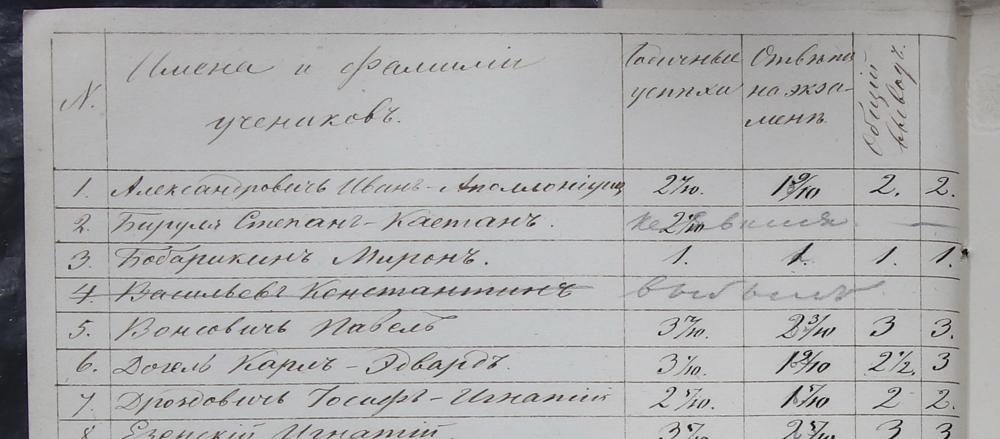 N. Имена и фамилии учениковъ. Годичные успѣхи Отвѣты на экза-менѣ Общій выводъ.
1. Александровичъ Иванъ-Аполлонiушъ 2 7/10. 1 9/10 2. 2.
2. Бируля Степанъ-Каетанъ. не явился —
3. Бобарикинъ Миронъ. 1. 1. 1. 1.
4 Васильевъ Константинъ выбылъ
5. Вонсовичъ Павелъ 3 7/10. 2 3/10 3 3.
6. Догель Карлъ-Эдвардъ. 3 1/10. 1 9/10 2 1/2. 3
7. Дроздовичъ Іосафъ-Игнатій 2 2.
8. Езенскій Игнатій. 3 3